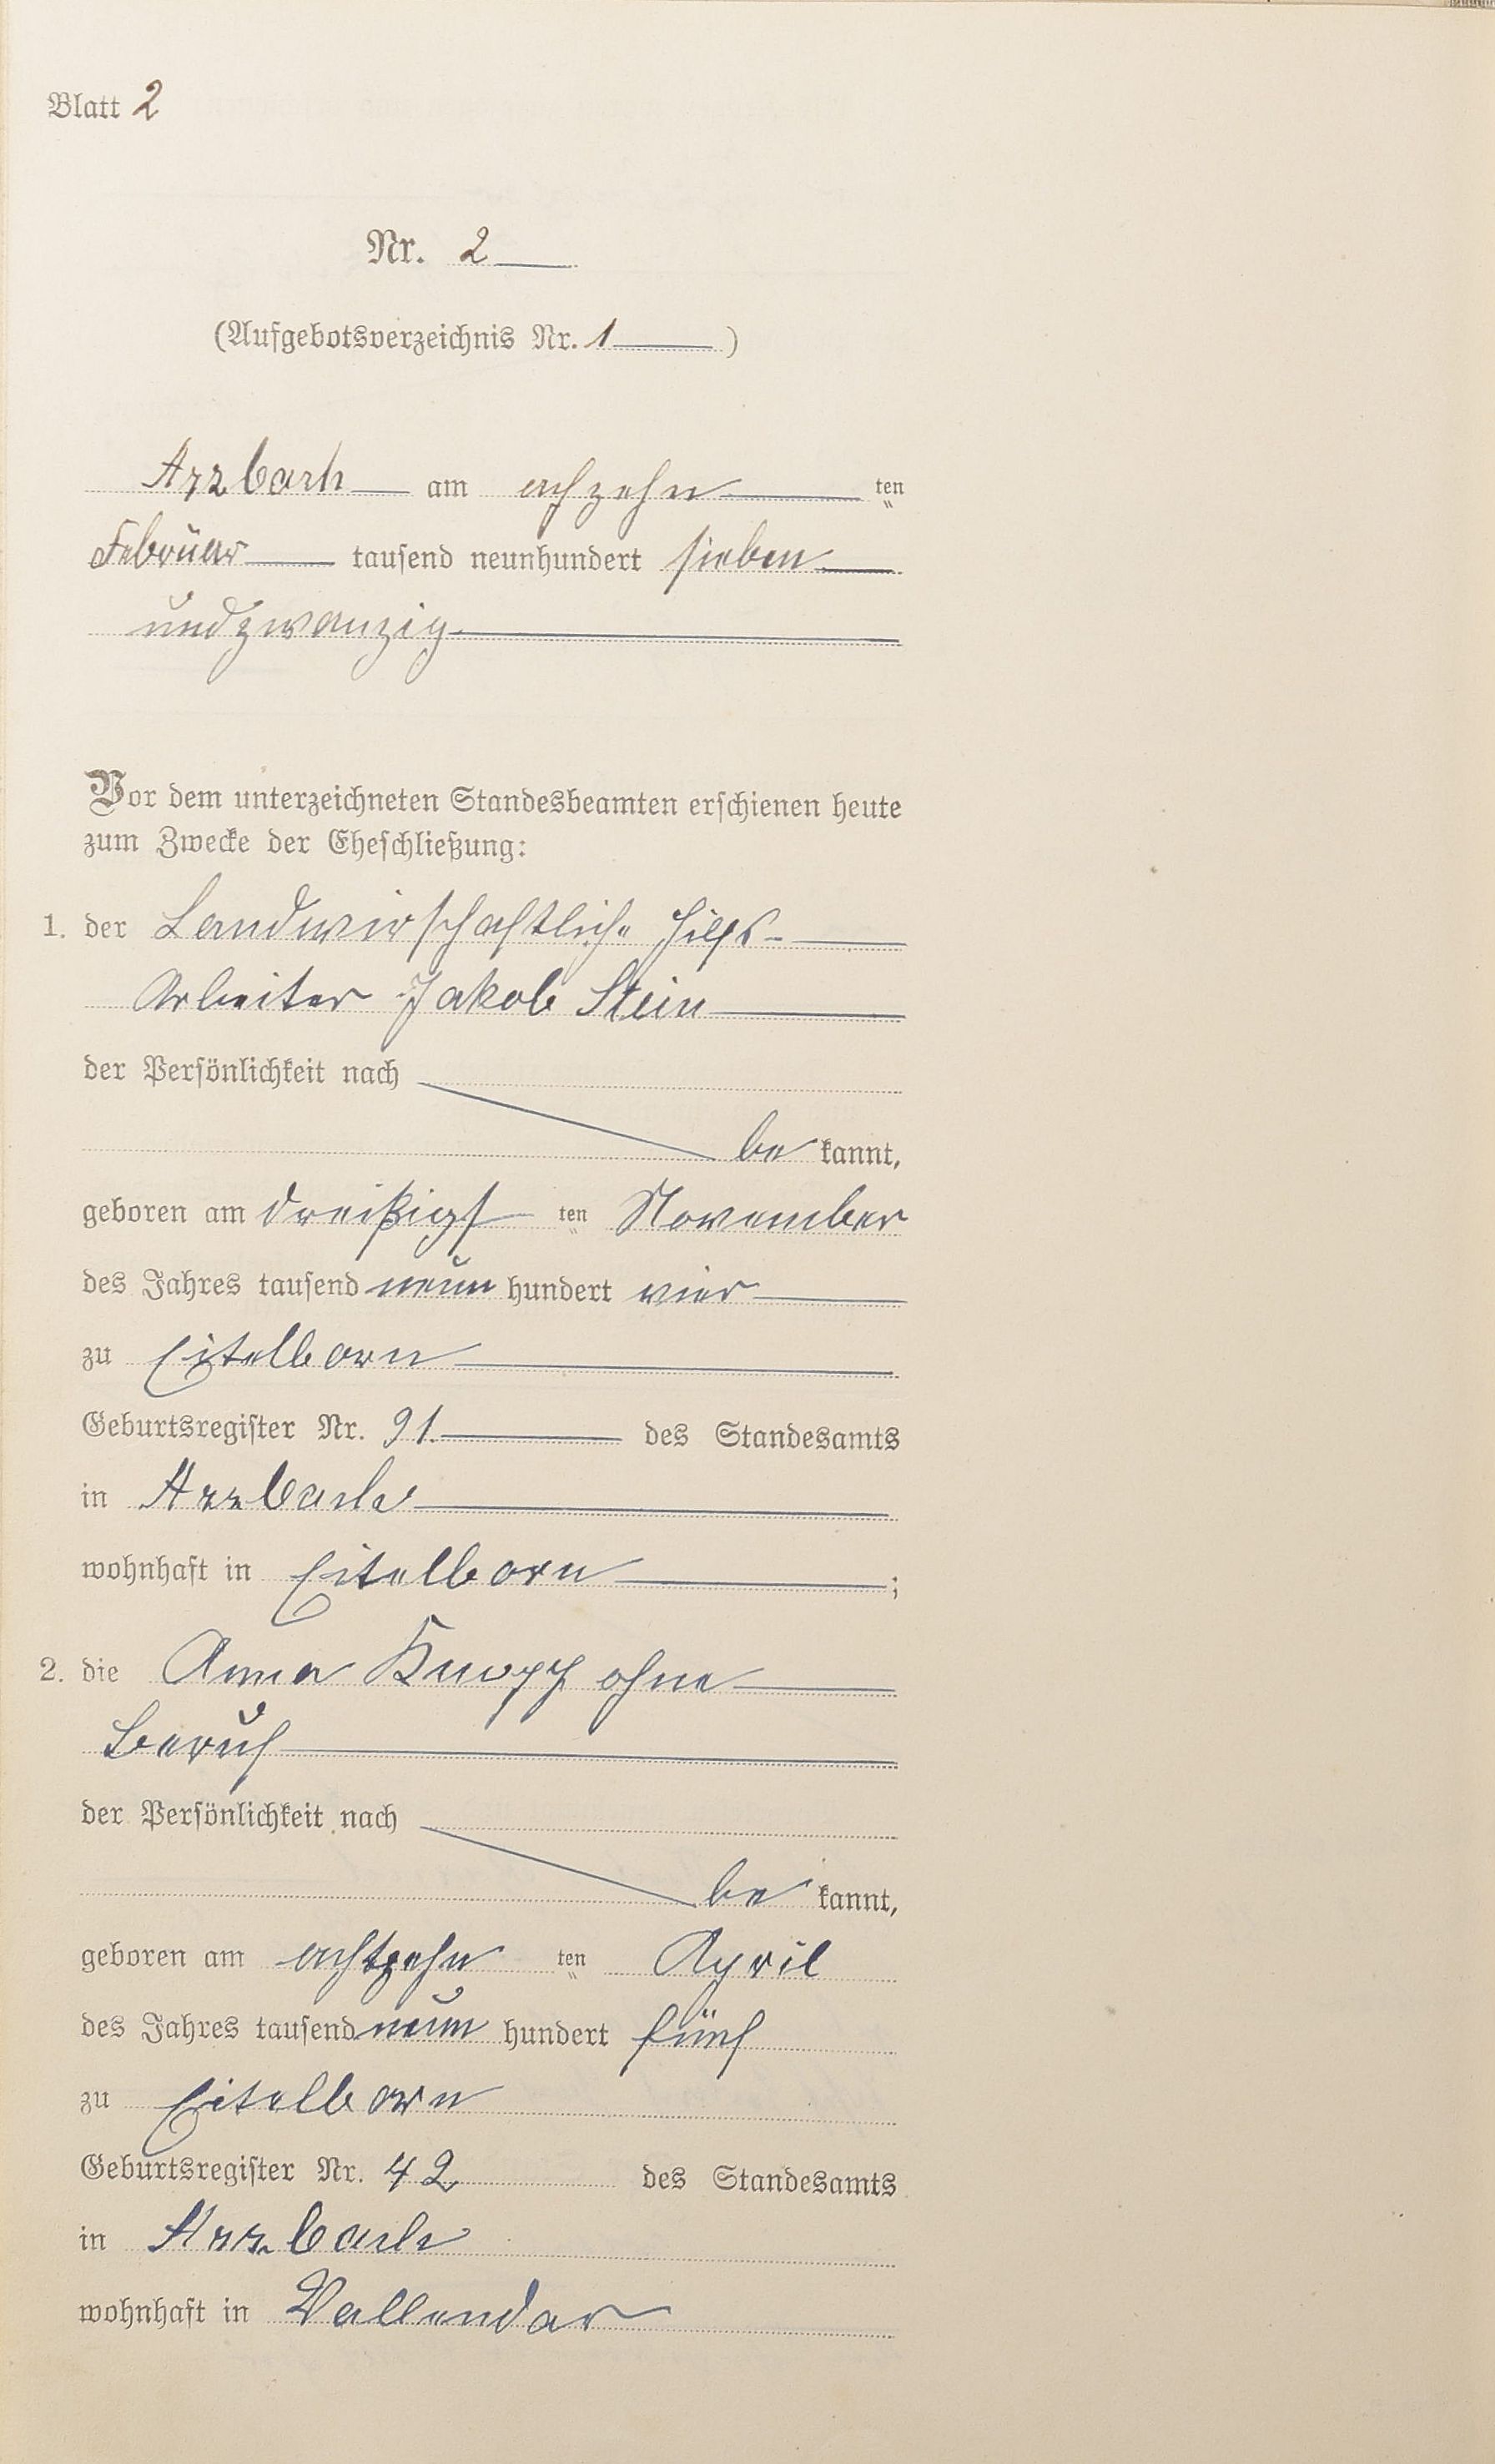 Blatt 2
Nr. 2
(Aufgebotsverzeichnis Nr. 1)
Arzbach am achzehn ten
Februar tausend neunhundert sieben
undzwanzig
Vor dem unterzeichneten Standesbeamten erschienen heute
zum Zwecke der Eheschließung:
1. der Landwirschaftliche Hilfs-
Arbeiter Jakob Stein
der Persönlichkeit nach
be kannt,
geboren am dreißigs ten November
des Jahres tausend neun hundert vier
zu Eitelborn
Geburtsregister Nr. 91. des Standesamts
in Arzbach
wohnhaft in Eitelborn ;
2. die Anna Knopp ohne
Beruf
der Persönlichkeit nach
be kannt,
geboren am achtzehn ten April
des Jahres tausend neun hundert fünf
zu Eitelborn
Geburtsregister Nr. 42 des Standesamts
in Arzbach
wohnhaft in Vallendar